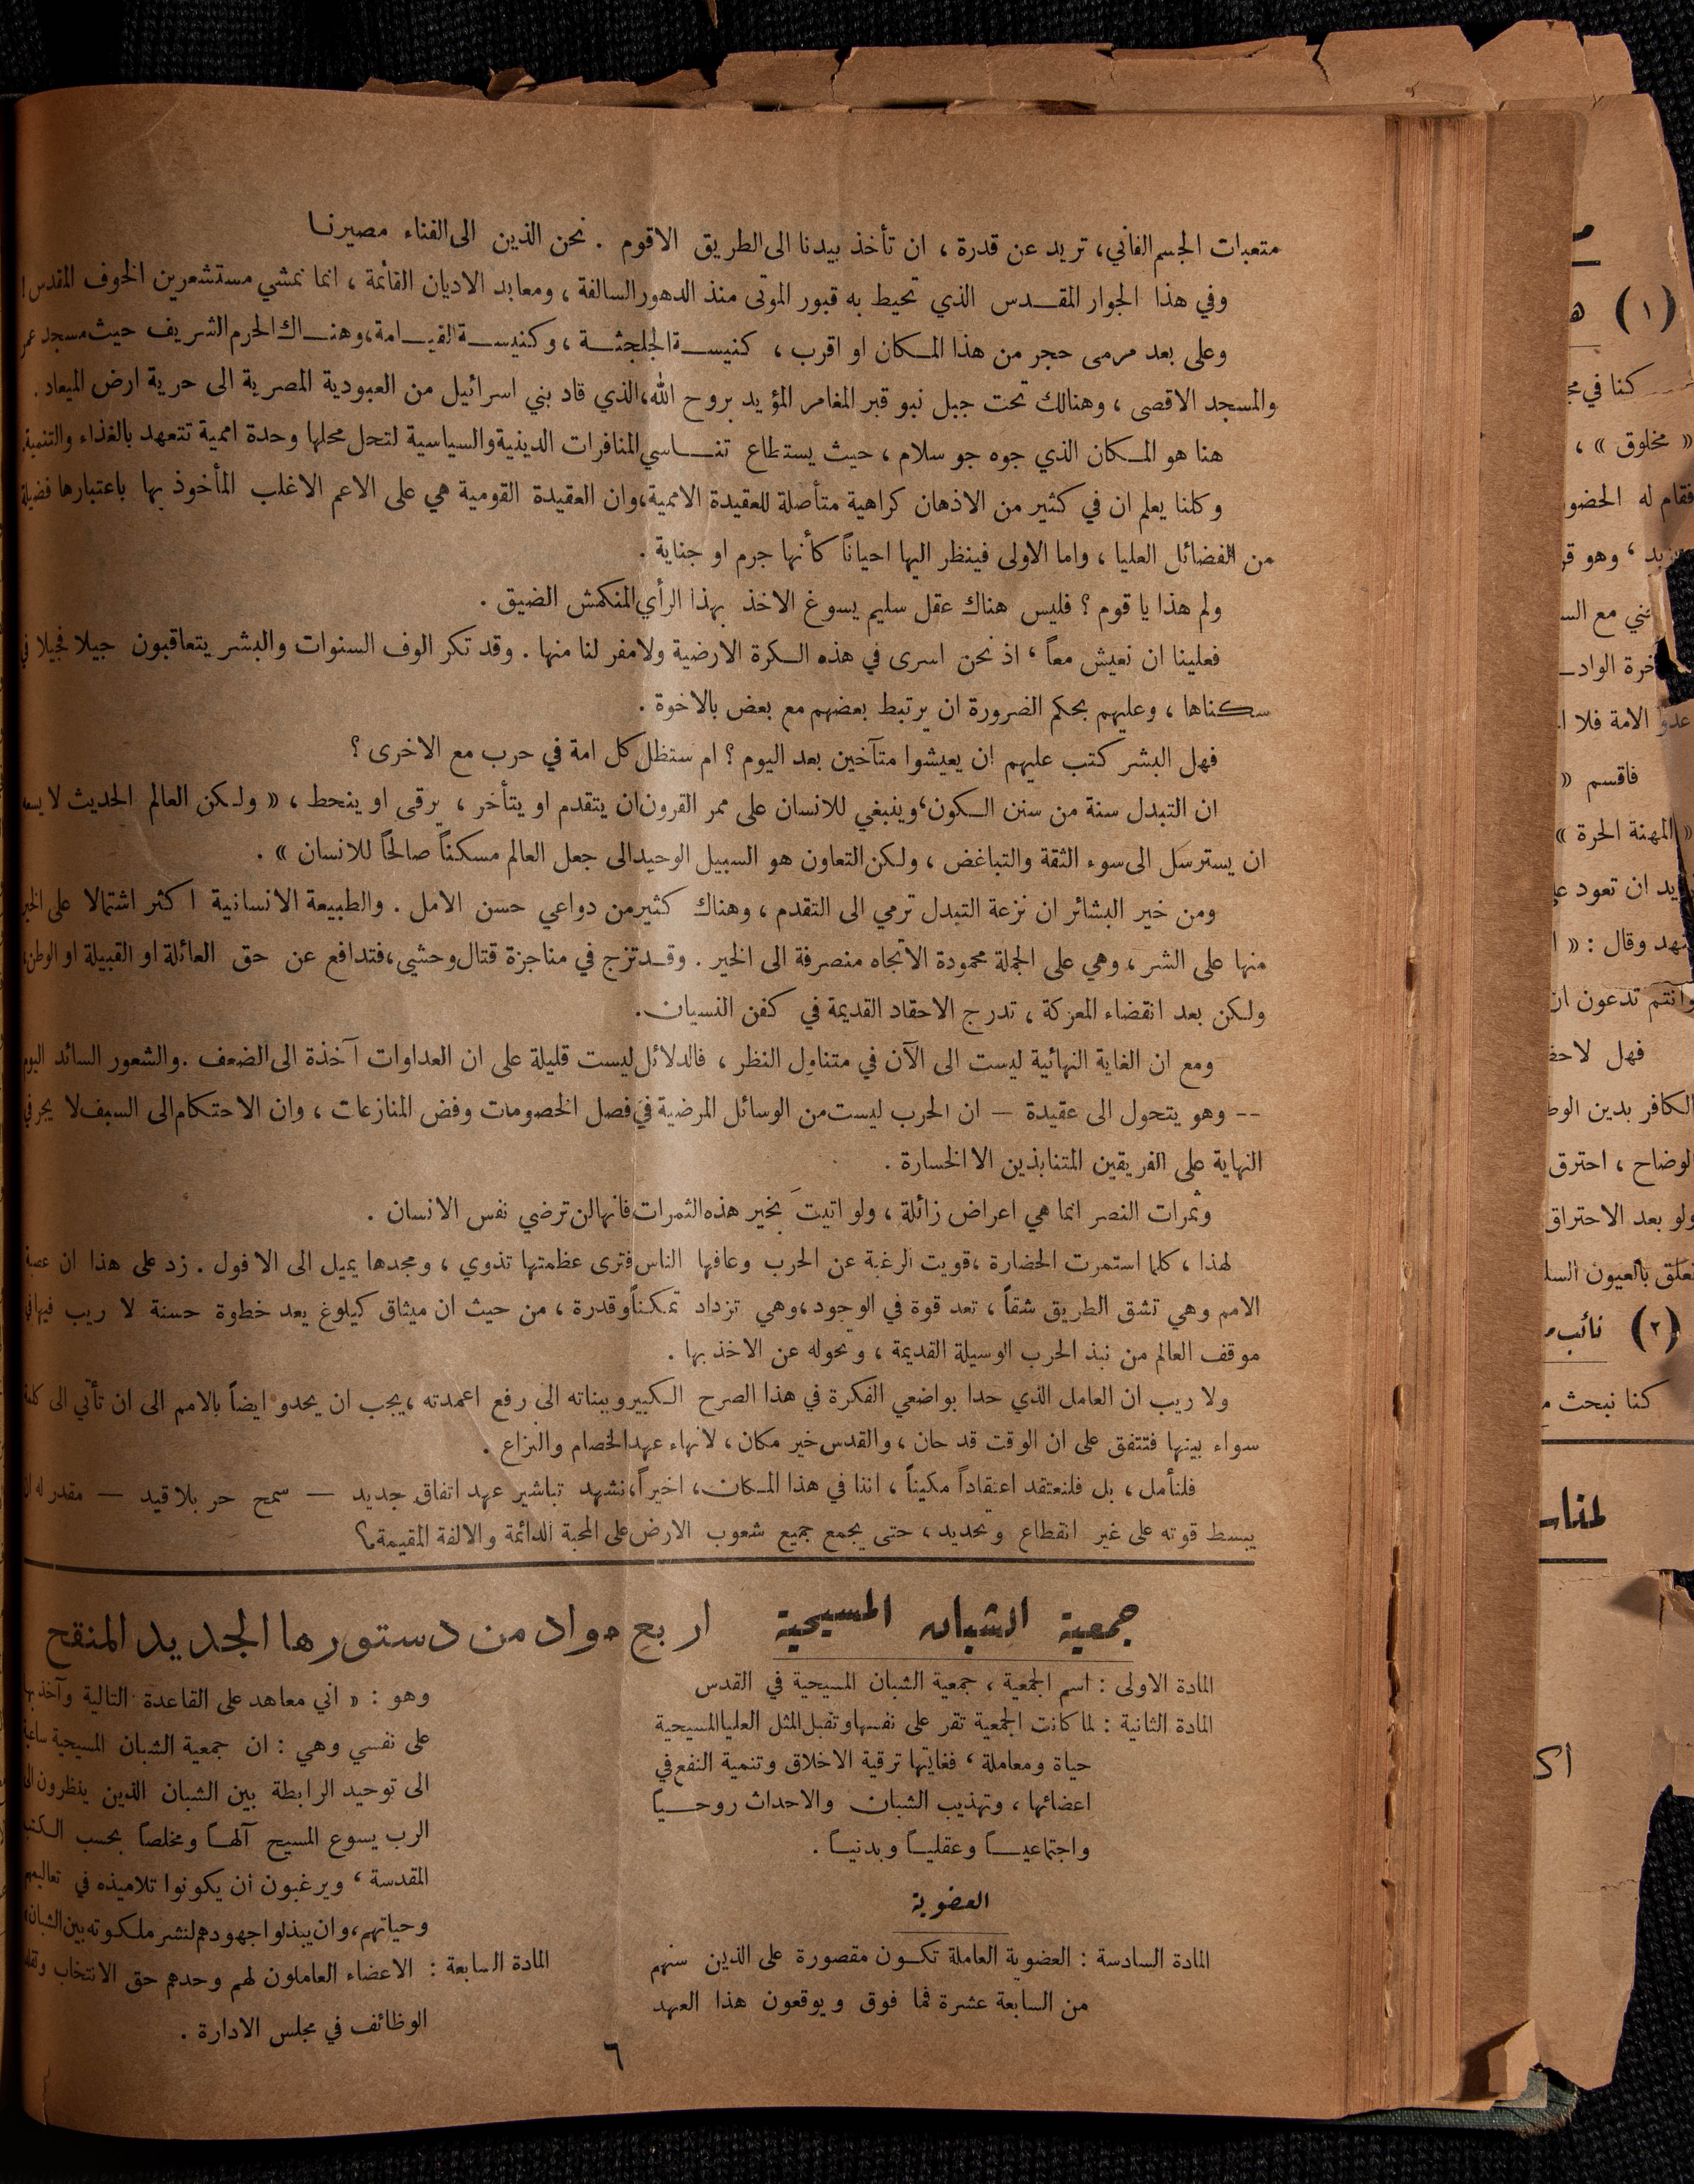 متعبات الجسم الفاني، تريد عن قدرة ، ان تأخذ بيدنا الى الطريق الاقوم . نحن الذين الى الفناء مصيرنا
وفي هذا الجوار المقدس الذي تحيط به قبور الموتى منذ الدهور السالفة ، ومعابد الاديان القائمة ، انما نمشي مستشعرين الخوف المقدس !
وعلى بعد مرمى حجر من هذا المكان او اقرب ، كنيسة الجلجثة ، وكنيسة القيامة، وهناك الحرم الشريف حيث مسجد عمر
والمسجد الاقصى ، وهنالك تحت جبل نبو قبر المغامر المؤيد بروح الله، الذي قاد بني اسرائيل من العبودية المصرية الى حرية ارض الميعاد .
هنا هو المكان الذي جوه جو سلام ، حيث يستطاع تناسي المنافرات الدينية والسياسية لتحل محلها وحدة اممية تتعهد بالغذاء والتنمية.
وكلنا يعلم ان في كثير من الاذهان كراهية متأصلة للعقيدة الاممية، وان العقيدة القومية هي على الاعم الاغلب المأخوذ بها باعتبارها فضيلة
من الفضائل العليا ، واما الاولى فينظر اليها احياناً كأنها جرم او جناية .
ولم هذا يا قوم ؟ فليس هناك عقل سليم يسوغ الاخذ بهذا الرأي المنكمش الضيق .
فعلينا ان نعيش معاً ، اذ نحن اسرى في هذه الكرة الارضية ولا مفر لنا منها . وقد تكر الوف السنوات والبشر يتعاقبون جيلا فجيلا في
سكناها ، وعليهم بحكم الضرورة ان يرتبط بعضهم مع بعض بالاخوة .
فهل البشر كتب عليهم ان يعيشوا متآخين بعد اليوم ؟ ام ستظل كل امة في حرب مع الاخرى ؟
ان التبدل سنة من سنن الكون، وينبغي للانسان على ممر القرون ان يتقدم او يتأخر ، يرقى او ينحط ، « ولكن العالم الحديث لا يسعه
ان يسترسل الى سوء الثقة والتباغض ، ولكن التعاون هو السبيل الوحيد الى جعل العالم مسكناً صالحاً للانسان » .
ومن خير البشائر ان نزعة التبدل ترمي الى التقدم ، وهناك كثير من دواعي حسن الامل . والطبيعة الانسانية اكثر اشتمالا على الخير
منها على الشر ، وهي على الجملة محمودة الاتجاه منصرفة الى الخير . وقد تزج في مناجزة قتال وحشي، فتدافع عن حق العائلة او القبيلة او الوطن،
ولكن بعد انقضاء المعركة ، تدرج الاحقاد القديمة في كفن النسيان.
ومع ان الغاية النهائية ليست الى الآن في متناول النظر ، فالدلائل ليست قليلة على ان العداوات آخذة الى الضعف . والشعور السائد اليوم
-- وهو يتحول الى عقيدة — ان الحرب ليست من الوسائل المرضية في فصل الخصومات وفض المنازعات ، وان الاحتكام الى السيف لا يجر في
النهاية على الفريقين المتنابذين الا الخسارة .
وثمرات النصر انما هي اعراض زائلة ، ولو اتيت بخير هذه الثمرات فانها لن ترضي نفس الانسان .
لهذا ، كلما استمرت الحضارة ، قويت الرغبة عن الحرب وعافها الناس فترى عظمتها تذوي ، ومجدها يميل الى الافول . زد على هذا ان عصبة
الامم وهي تشق الطريق شقاً ، تعد قوة في الوجود، وهي تزداد تمكناً وقدرة ، من حيث ان ميثاق كيلوغ يعد خطوة حسنة لا ريب فيها في
موقف العالم من نبذ الحرب الوسيلة القديمة ، وتحوله عن الاخذ بها .
ولا ريب ان العامل الذي حدا بواضعي الفكرة في هذا الصرح الكبير وببناته الى رفع اعمدته ، يجب ان يحدو ايضاً بالامم الى ان تأتي الى كلمة
سواء بينها فتتفق على ان الوقت قد حان ، والقدس خير مكان ، لانهاء عهد الخصام والنزاع .
فلنأمل ، بل فلنعتقد اعتقاداً مكيناً ، اننا في هذا المكان، اخيراً، نشهد تباشير عهد اتفاق جديد — سمح حر بلا قيد — مقدر له ان
يبسط قوته على غير انقطاع وتحديد ، حتى يجمع جميع شعوب الارض على المحبة الدائمة والالفة المقيمة؟
جمعية الشبان المسيحية اربع مواد من دستورها الجديد المنقح
المادة الاولى : اسم الجمعية ، جمعية الشبان المسيحية في القدس
المادة الثانية : لما كانت الجمعية تقر على نفسها وتقبل المثل العليا المسيحية
حياة ومعاملة ، فغايتها ترقية الاخلاق وتنمية النفع في
اعضائها ، وتهذيب الشبان والاحداث روحياً
واجتماعياً وعقلياً وبدنياً .
العضوية
المادة السادسة : العضوية العاملة تكون مقصورة على الذين سنهم
من السابعة عشرة فما فوق ويوقعون هذا العهد
وهو : « اني معاهد على القاعدة التالية وآخذ بها
على نفسي وهي : ان جمعية الشبان المسيحية ساعية
الى توحيد الرابطة بين الشبان الذين ينظرون الى
الرب يسوع المسيح آلهاً ومخلصاً بحسب الكتب
المقدسة ، ويرغبون ان يكونوا تلاميذه في تعاليمهم
وحياتهم، وان يبذلوا جهودهم لنشر ملكوته بين الشبان»
المادة السابعة : الاعضاء العاملون لهم وحدهم حق الانتخاب وتقلد
الوظائف في مجلس الادارة .
٦
(١)
كنا في
« مخلوق » ،
فقام له الحضور
، وهو
مع
عدو الامة فلا
فاقسم «
« المهنة الحرة »
ان تعود
وقال : «
وانتم تدعون ان
فهل
الكافر بدين
الوضاح ، احترق
ولو بعد الاحتراق
بالعيون
(٢) نائب
كنا نبحث